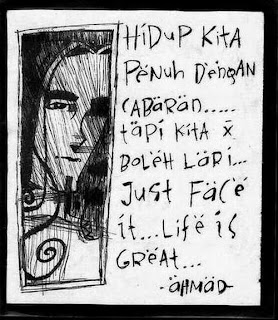 HiDUP KiTA
PëNUH DËNGAN
CABÄRÄN.....
täPi KiTA x̄
BOLËH LÄRi...
JUST FÄCË
it...LiFë iS
GRËAT...
-ÄHMÄD-